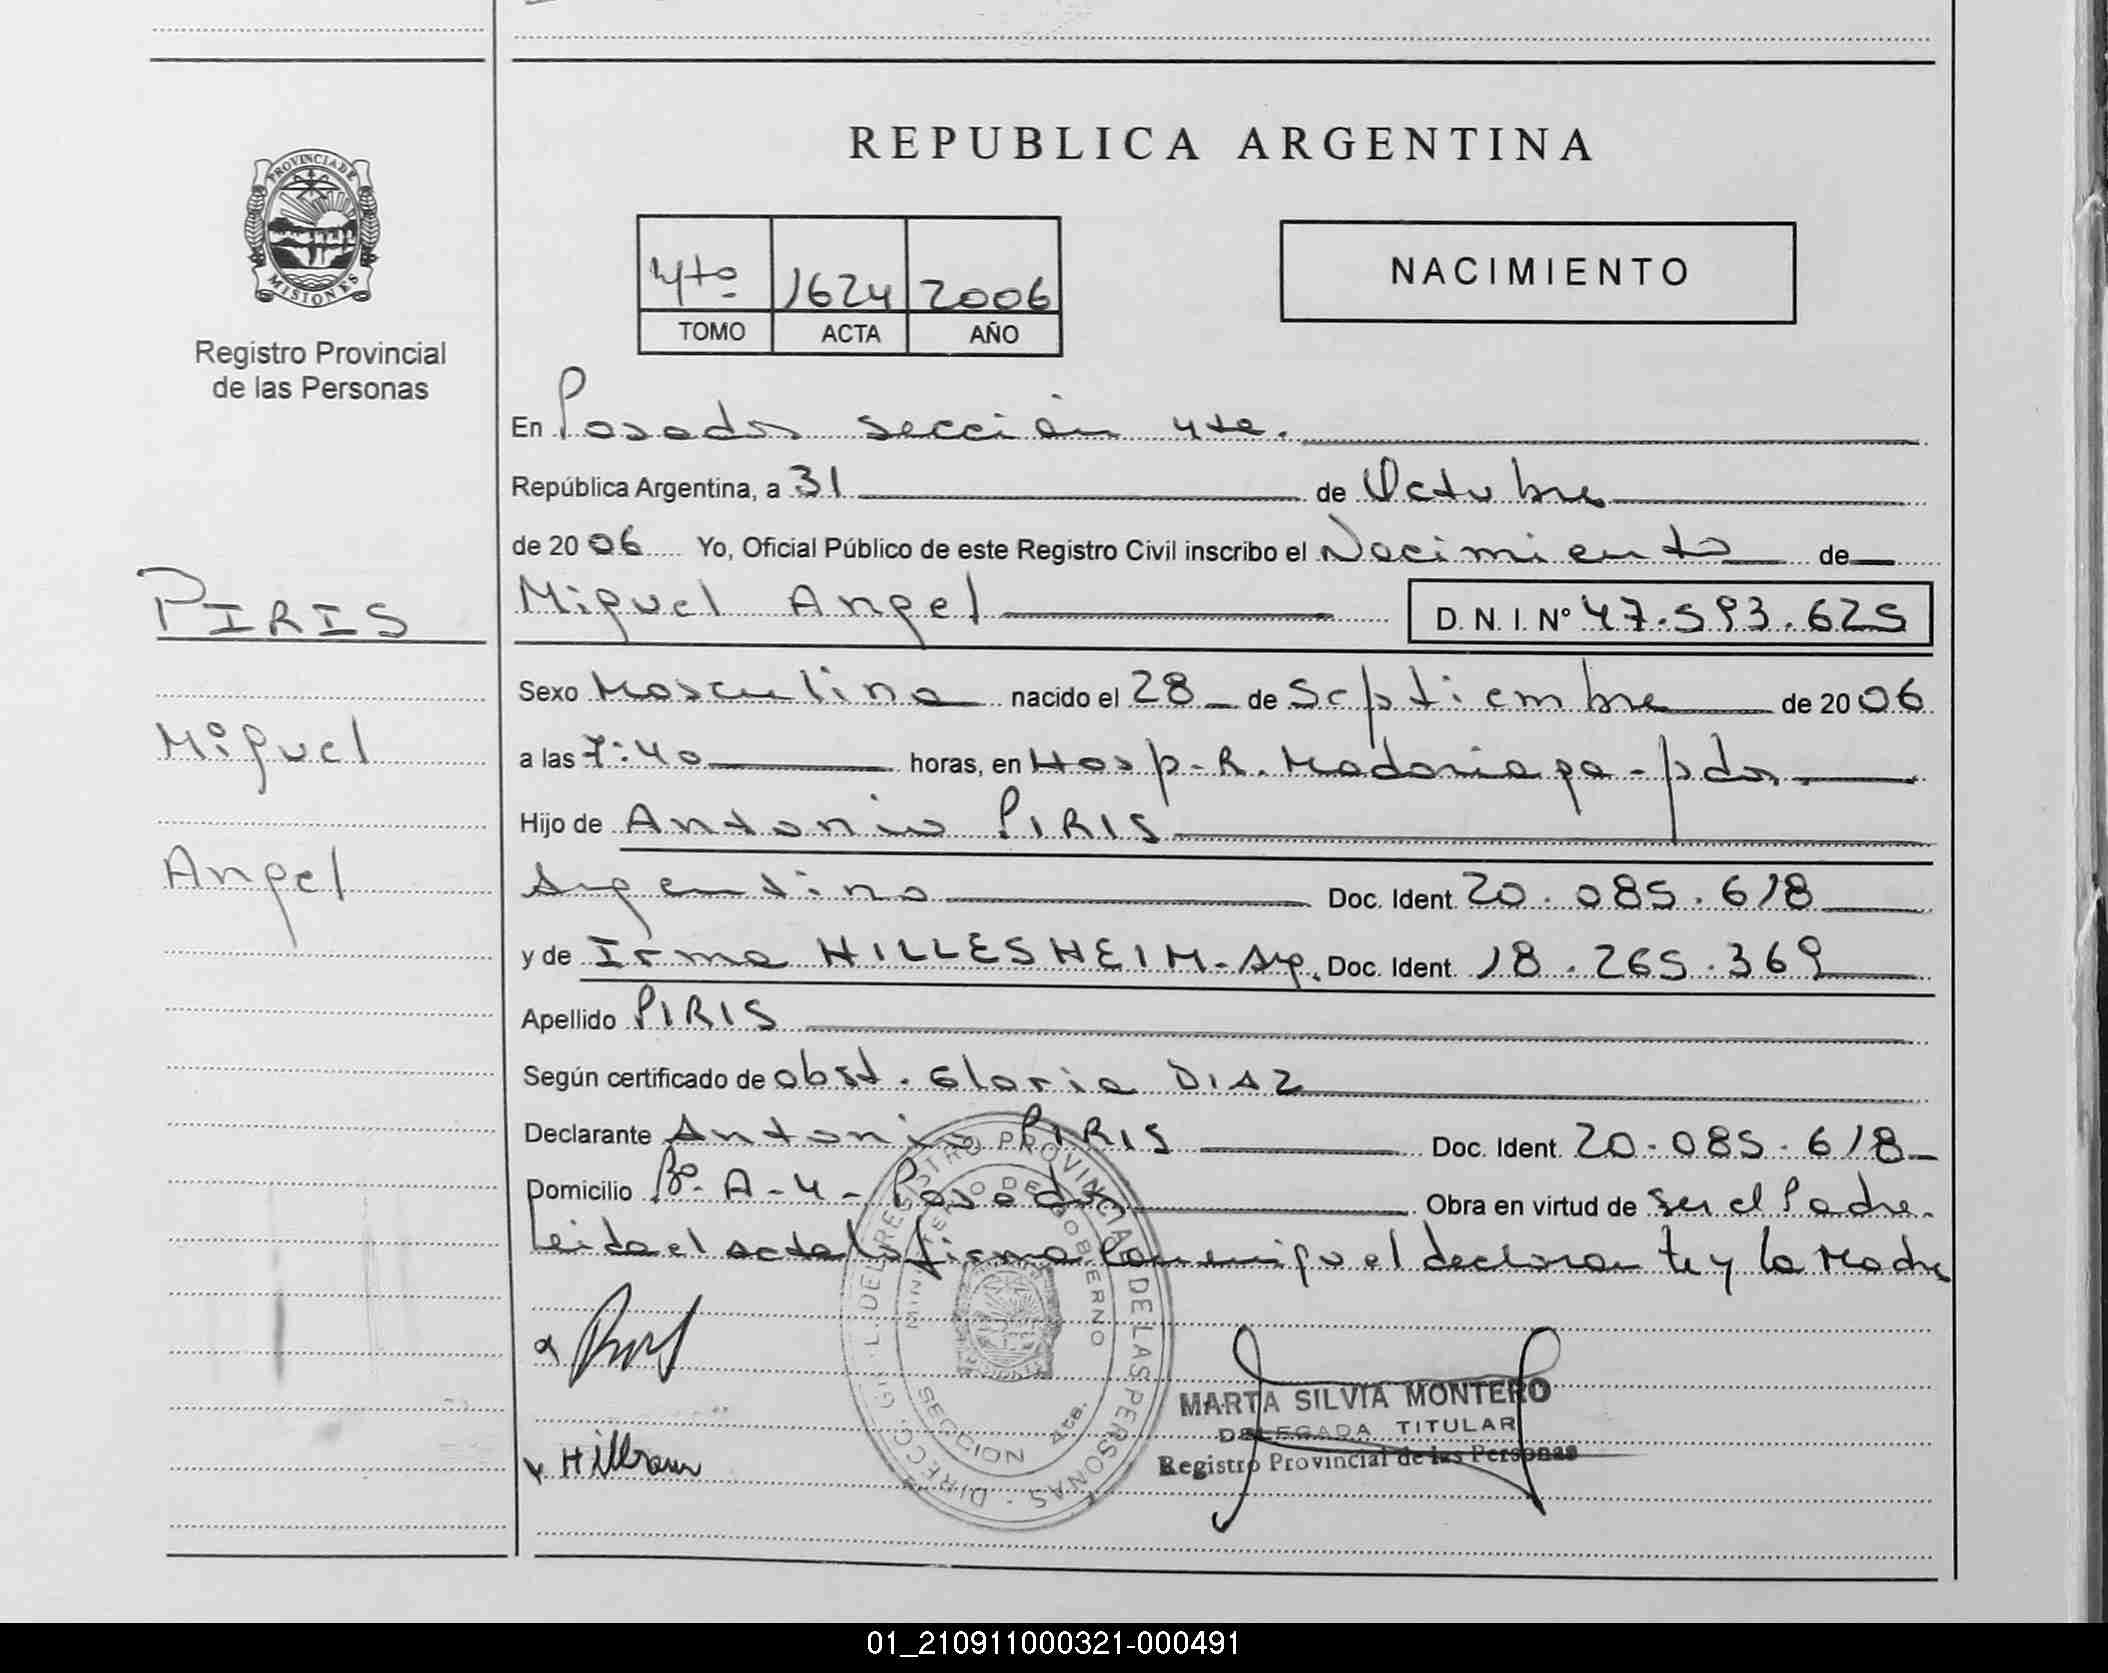 REPUBLICA ARGENTINA
PROVINCIA DE
MISIONES
Registro Provincial
de las Personas
4to 1624 2006
TOMO ACTA AÑO
NACIMIENTO
En Posadas sección 4ta.
República Argentina, a 31 de Octubre
de 2006 Yo, Oficial Público de este Registro Civil inscribo el Nacimiento de
PIRIS
Miguel Angel
Miguel Angel D.N.I. Nº 47.593.625
Sexo Masculino nacido el 28 de Septiembre de 2006
a las 7:40 horas, en Hosp. R. Madariaga - pdas.
Hijo de Antonio PIRIS
Argentino Doc. Ident. 20.085.618
y de Irma HILLESHEIM - Arg. Doc. Ident. 18.265.369
Apellido PIRIS
Según certificado de obst. Gloria DIAZ
Declarante Antonio PIRIS Doc. Ident. 20.085.618
Domicilio Bº. A-4 - Posadas Obra en virtud de ser el Padre.
Leida el acta la firma conmigo el declarante y la Madre
DIRECC. GRAL. DEL REGISTRO PROVINCIAL DE LAS PERSONAS
MINISTERIO DE GOBIERNO
SECCION 4ta.
MARTA SILVIA MONTERO
DELEGADA TITULAR
Registro Provincial de las Personas
01_210911000321-000491